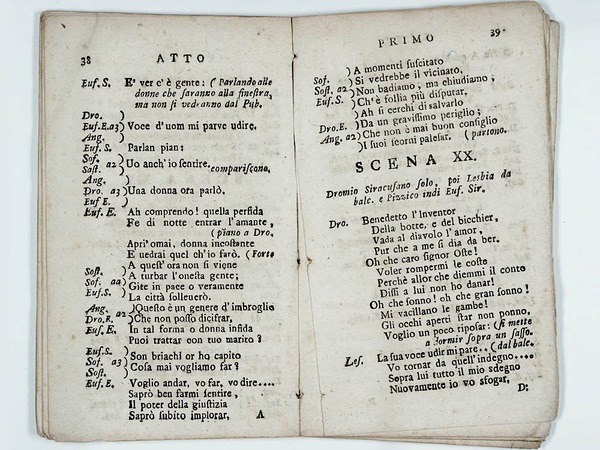 38 ATTO
Euf. S. E' ver c'è gente: ( Parlando alle
donne che saranno alla finestra,
ma non si vedranno dal Pub.
Dro. )
Euf.E.a3 ) Voce d'uom mi parve udire.
Ang. )
Euf. S. Parlan pian:
Sof. a2 ) Uo anch'io sentire. compariscono.
Sast. )
Ang. )
Dro. a3 ) Una donna ora parlò.
Euf E. )
Euf. E. Ah comprendo! quella perfida
Fe di notte entrar l'amante,
( piano a Dro.
Apri' omai, donna incostante
E uedrai quel ch'io farò. ( Forte
A quest' ora non si viene
Sost. ) A turbar l'onesta gente;
Sof. aa ) Gite in pace o veramente
Euf.S. ) La città solleuerò.
Ang. ) Questo è un genere d'imbroglio
Dro.E. a2 ) Che non posso dicifrar,
Euf. E. In tal forma o donna insida
Puoi trattar con tuo marito?
Euf.S. )
Sof. a3 ) Son briachi or ho capito
Sost. ) Cosa mai vogliamo far?
Euf. E. Voglio andar, vo far, vo dire....
Saprò ben farmi sentire,
Il poter della giustizia
Saprò subito implorar, A
PRIMO 39
) A momenti suscitato
Sof. ) Si vedrebbe il vicinato,
Sost. a2 ) Non badiamo, ma chiudiamo;
Euf. S. ) Ch'è follia più disputar,
) Ah si cerchi di salvarlo
Dro.E. ) Da un gravissimo periglio;
Ang. a2 ) Che non è mai buon consiglio
) I suoi scorni palesar. ( partono.
SCENA XX.
Dromio Siracusano solo, poi Lesbia da
balc. e Pizzico indi Euf. Sir.
Dro. Benedetto l'Inventor
Della botte, e del bicchier,
Vada al diavolo l'amor,
Pur che a me si dia da ber.
Oh che caro signor Oste!
Voler rompermi le coste
Perchè allor che diemmi il conto
Dissi a lui non ho danar!
Oh che sonno! oh che gran sonno!
Mi vacillano le gambe!
Gli occhi aperti star non ponno,
Voglio un poco riposar: ( si mette
a dormir sopra un sasso.
Les. La sua voce udir mi pare.. ( dal balc.
Vo tornar da quell' indegno....
Sopra lui tutto il mio sdegno
Nuovamente io vo sfogar,
D;